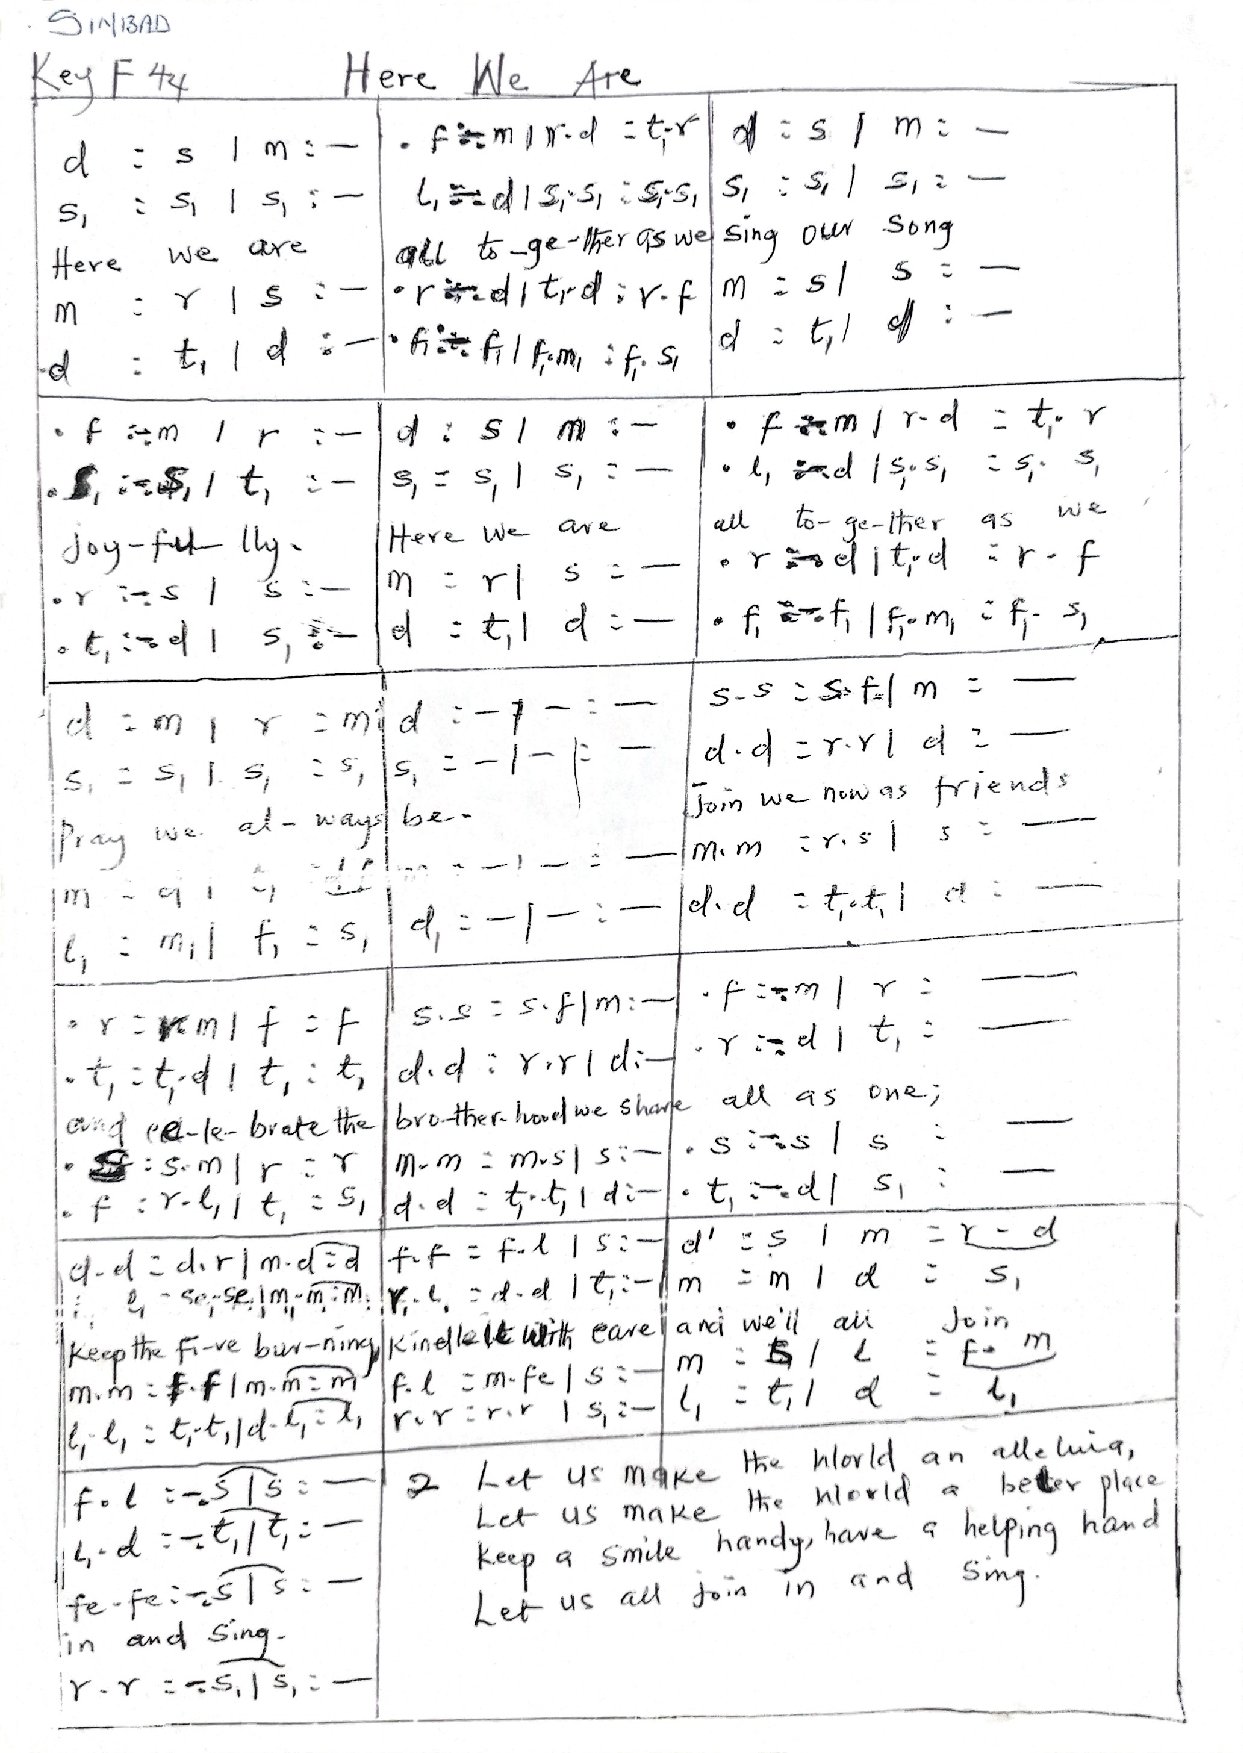 SINBAD
Key F 4/4 Here We Are
d : s | m : —
s₁ : s₁ | s₁ : —
Here we are
m : r | s : —
d : t₁ | d : —
. f :-. m | r . d : t₁ . r
l₁ :-. d | s₁ . s₁ : s₁ . s₁
all to-ge-ther as we
. r :-. d | t₁ . d : r . f
. f₁ :-. f₁ | f₁ . m₁ : f₁ . s₁
d : s | m : —
s₁ : s₁ | s₁ : —
sing our song
m : s | s : —
d : t₁ | d : —
. f :-. m | r : —
. s₁ :-. s₁ | t₁ : —
joy-ful-lly.
. r :-. s | s : —
. t₁ :-. d | s₁ : —
d : s | m : —
s₁ : s₁ | s₁ : —
Here we are
m : r | s : —
d : t₁ | d : —
. f :-. m | r . d : t₁ . r
. l₁ :-. d | s₁ . s₁ : s₁ . s₁
all to-ge-ther as we
. r :-. d | t₁ . d : r . f
. f₁ :-. f₁ | f₁ . m₁ : f₁ . s₁
d : m | r : m
s₁ : s₁ | s₁ : s₁
Pray we al-ways
l₁ : m₁ | f₁ : s₁
d : — | — : —
s₁ : — | — : —
be.
m : — | — : —
d₁ : — | — : —
s . s : s . f | m : —
d . d : r . r | d : —
Join we now as friends
m . m : r . s | s : —
d . d : t₁ . t₁ | d : —
. r : r . m | f : f
. t₁ : t₁ . d | t₁ : t₁
and ce-le-brate the
. s : s . m | r : r
. f : r . l₁ | t₁ : s₁
s . s : s . f | m : —
d . d : r . r | d : —
bro-ther-hood we share
m . m : m . s | s : —
d . d : t₁ . t₁ | d : —
. f :-. m | r : —
. r :-. d | t₁ : —
all as one;
. s :-. s | s : —
. t₁ :-. d | s₁ : —
d . d : d . r | m . d : d
l₁ . se₁ . se₁ | m₁ . m₁ : m₁
Keep the fi-re bur-ning
m . m : f . f | m . m : m
l₁ . l₁ : t₁ . t₁ | d . l₁ : l₁
f . f : f . l | s : —
r . l₁ : d . d | t₁ : —
Kindle it with care
f . l : m . fe | s : —
r . r : r . r | s₁ : —
d' : s | m : r . d
m : m | d : s₁
and we'll all join
m : s | l : f . m
l₁ : t₁ | d : l₁
f . l :-. s | s : —
l₁ . d :-. t₁ | t₁ : —
fe . fe :-. s | s : —
in and sing.
r . r :-. s₁ | s₁ : —
2 Let us make the World an alleluia,
Let us make the World a better place
Keep a smile handy, have a helping hand
Let us all join in and sing.